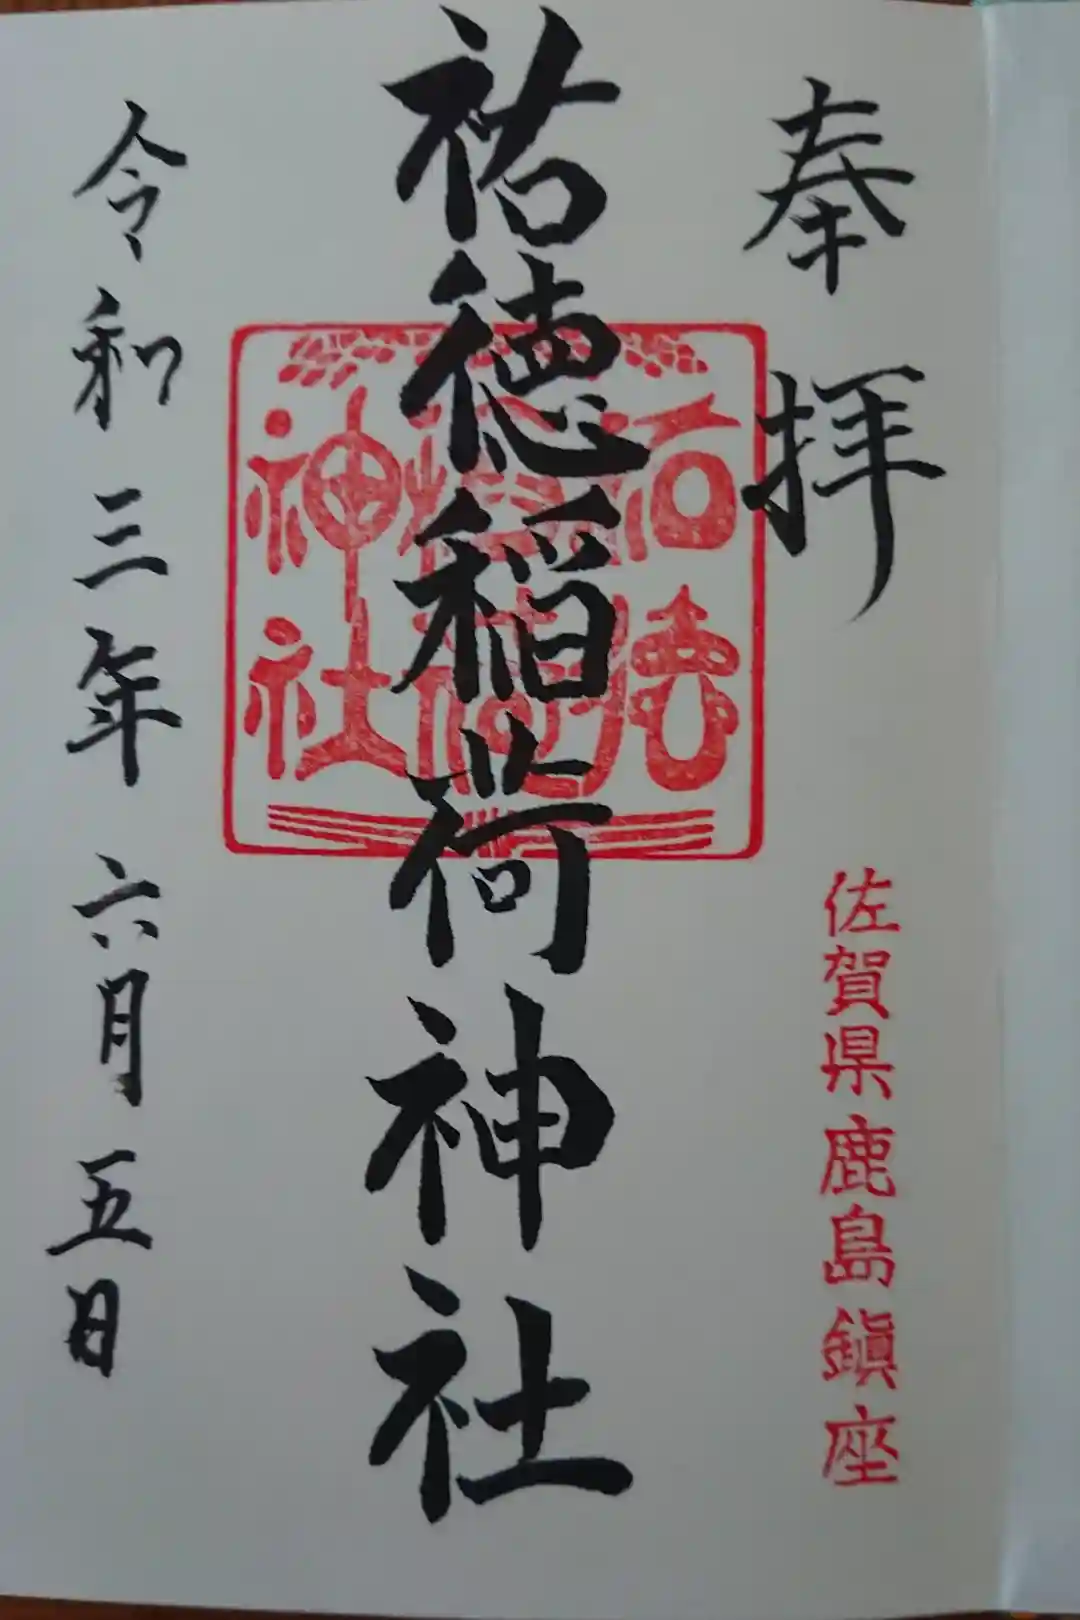 奉拝
佐賀県鹿島鎮座
祐徳稲荷神社
祐徳稲荷神社
令和三年六月五日